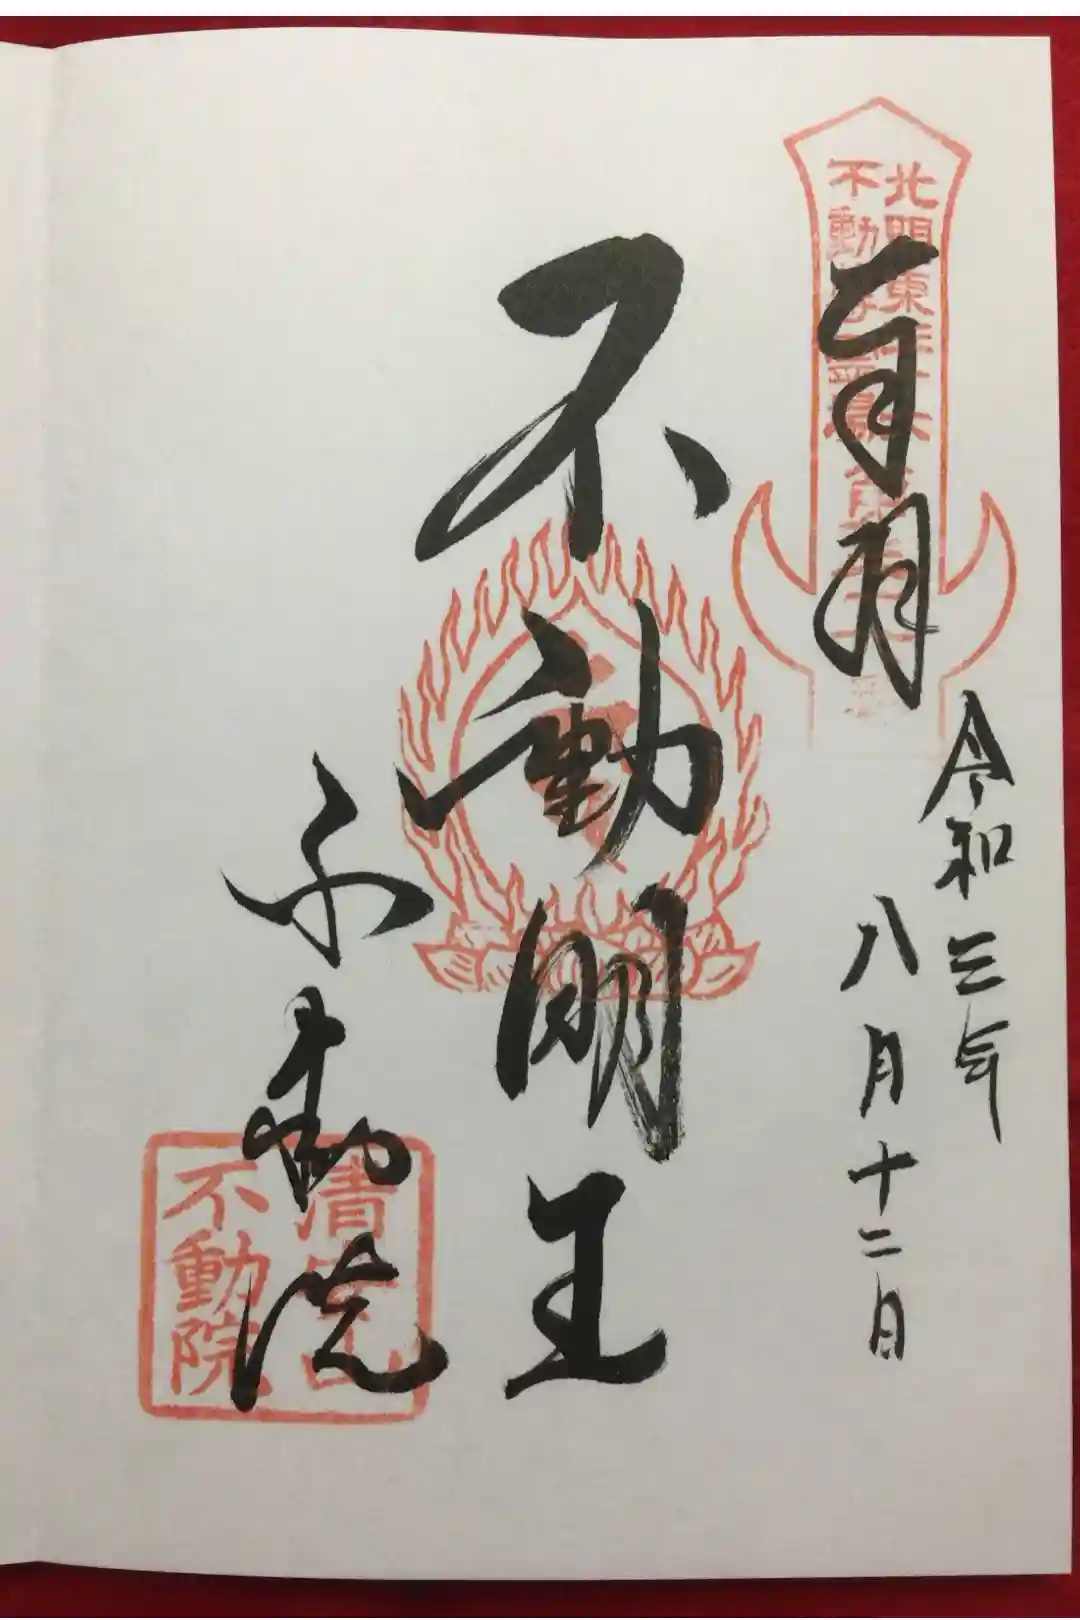 北関東三十六
不動尊霊場
令和三年
八月十二日
不動明王
不動院
清
不動院